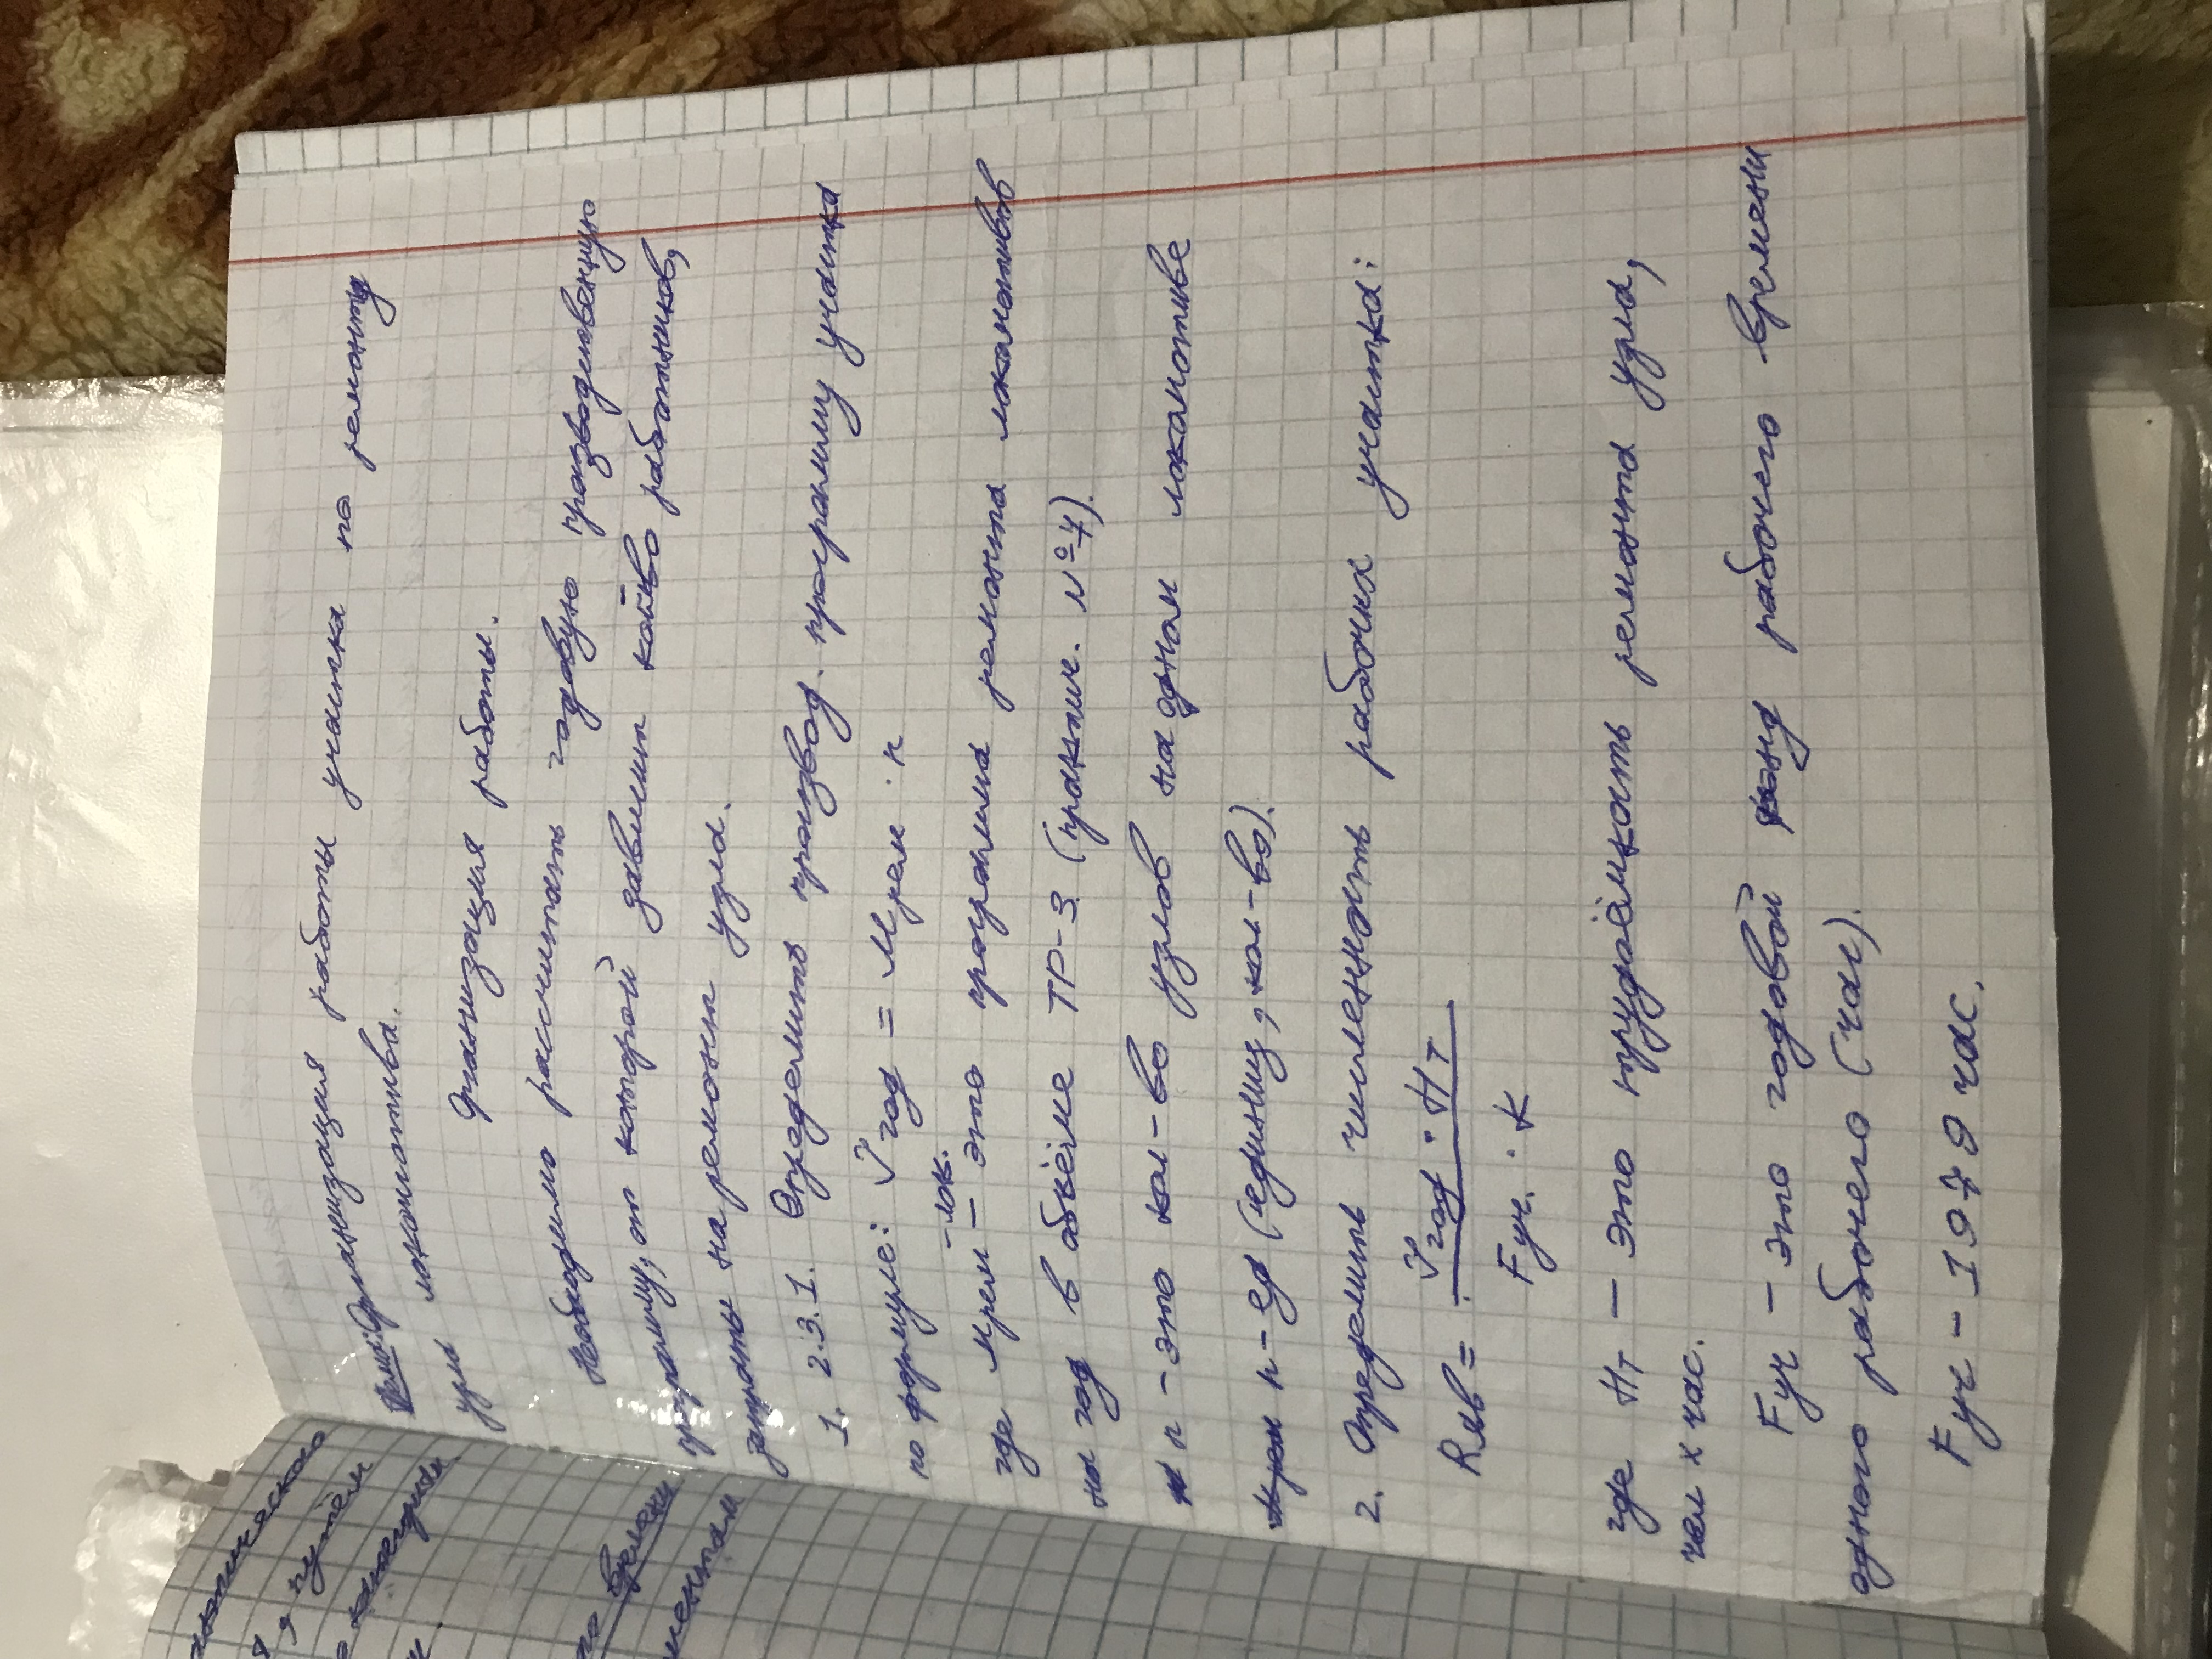 Тема: Организация работы участка по ремонту
узла локомотива.
Организация работы.
Необходимо рассчитать годовую производственную
программу, от которой зависит кол-во работников,
затраты на ремонт узла.
1. 2.3.1. Определить производ. программу участка
по формуле: Vгод = Mрем · n
где Mрем-лок. – это программа ремонта локомотивов
на год в объёме ТР-3 (практич. №4).
n – это кол-во узлов на одном локомотиве
n – ед (единиц, кол-во).
2. Определить численность рабочих участка:
Rяв = Vгод · Hт
Fуч. · K
где Hт – это трудоёмкость ремонта узла,
чел × час.
Fуч – это годовой фонд рабочего времени
одного рабочего (час).
Fуч – 1979 час.